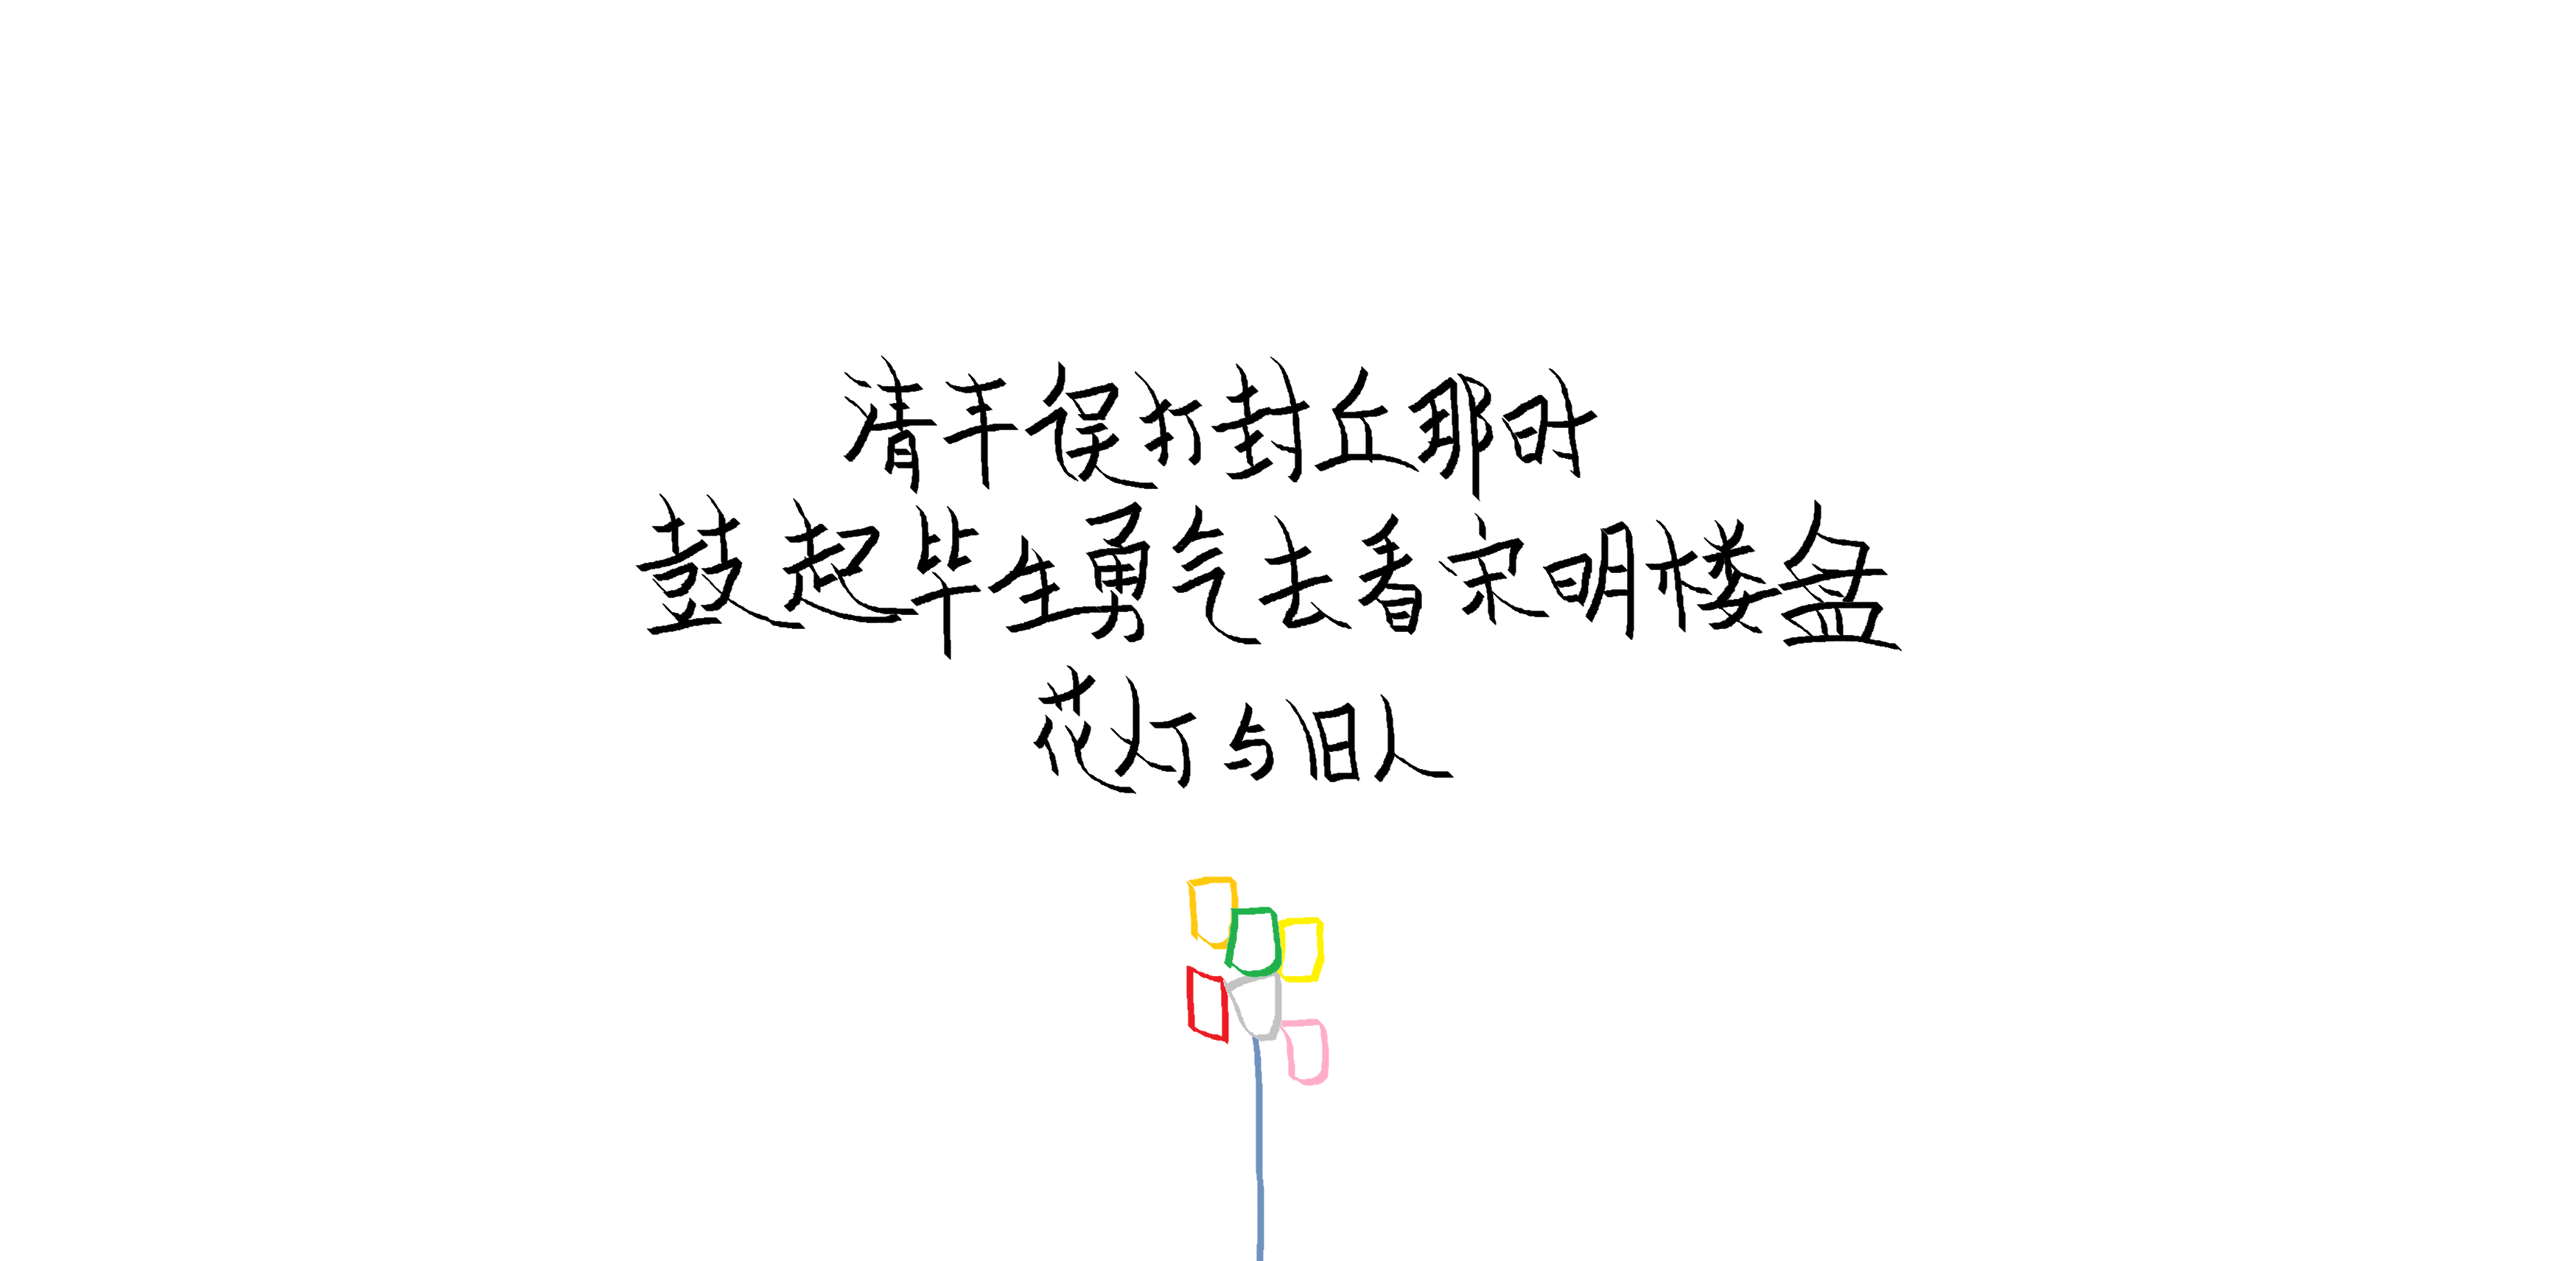 清丰误打封丘那时
鼓起毕生勇气去看宋明楼盘
花灯与旧人